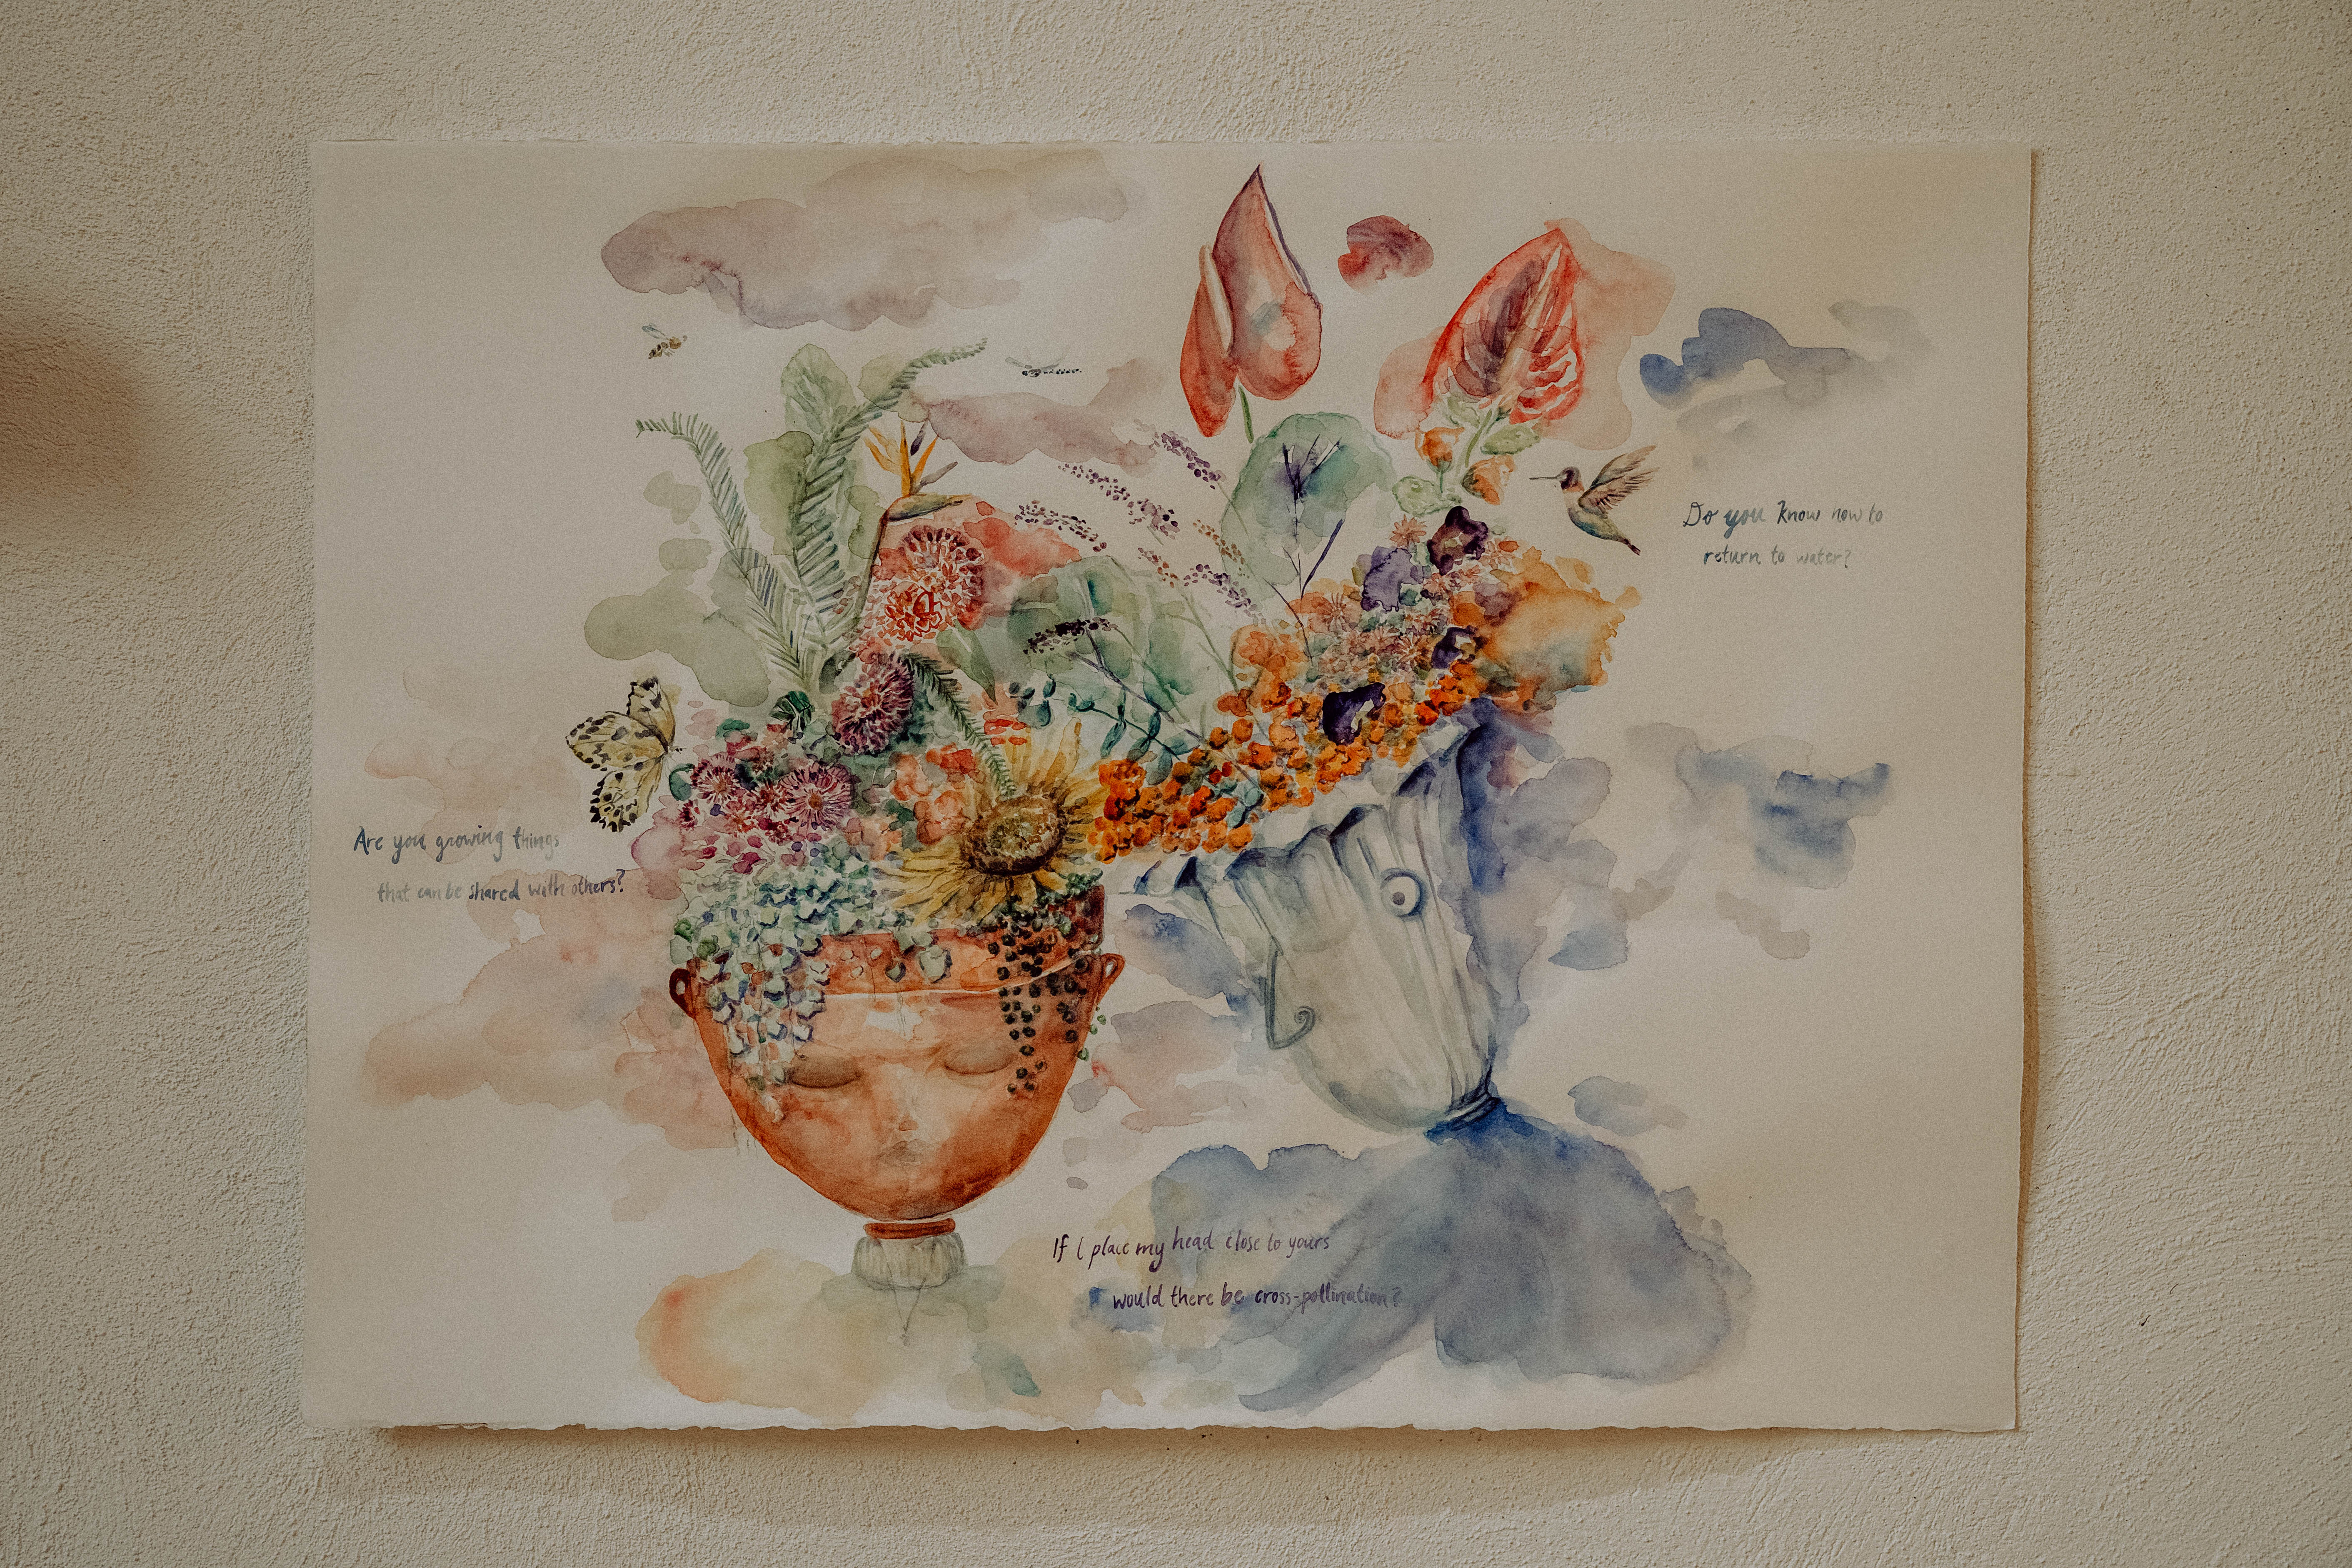 Do you know how to
return to water?
Are you growing things
that can be shared with others?
If I place my head close to yours
would there be cross-pollination?